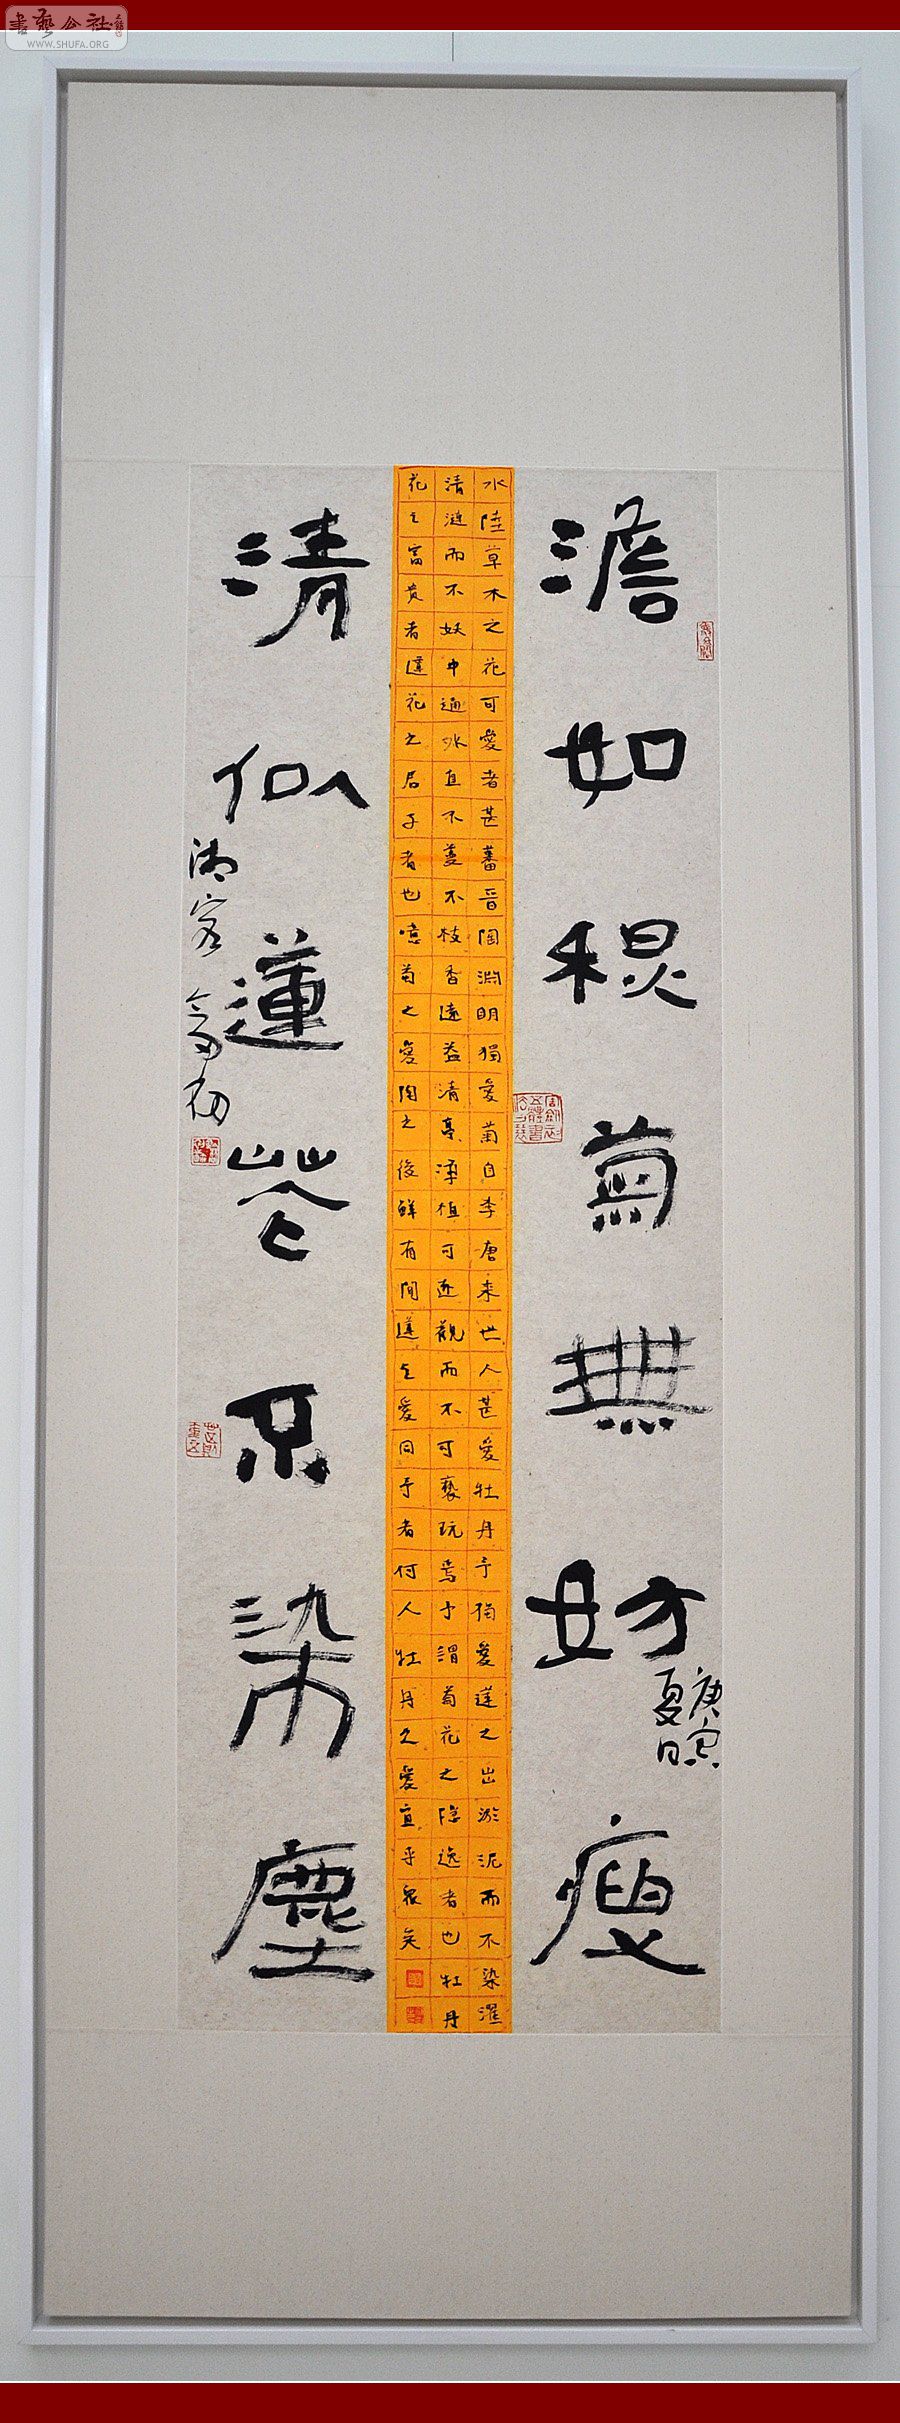 書藝公社
WWW.SHUFA.ORG
澹如秋菊無妨瘦
庚寅
夏日
水陸草木之花可愛者甚蕃晉陶淵明獨愛菊自李唐来世人甚愛牡丹予獨愛蓮之出淤泥而不染濯
清漣而不妖中通外直不蔓不枝香遠益清亭淨植可遠觀而不可褻玩焉予謂菊花之隱逸者也牡丹
花之富貴者蓮花之君子者也噫菊之愛陶之後鮮有聞蓮之愛同予者何人牡丹之愛宜乎衆矣
清似蓮花不染塵